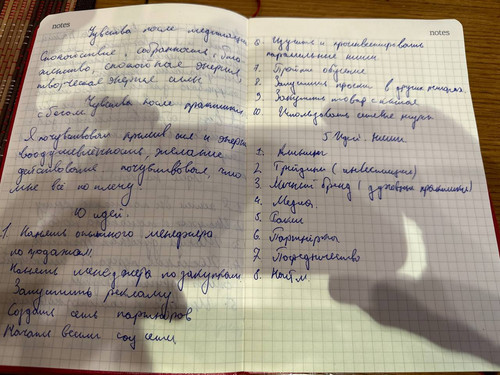 notes
Чувства после медитации
Спокойствие, собранность, бла
женство, спокойная энергия,
творческая энергия силы
Чувства после практики
с Богом.
Я почувствовал прилив сил и энерги
воодушевлённость, желание
действовать. почувствовал, что
мне всё по плечу
10 идей.
1. Нанять опытного менеджера
по продажам.
Нанять менеджера по закупкам
Запустить рекламу
Создать сеть партнёров
Начать вести соц сети
notes
6. Изучить и проинвестировать
7. Пройти обучение
8. Запустить проекты в других
9. Запустить товар с Китая
10. Использовать сетевые
5 Идей. Ниши
1.
2. Трейдинг (инвестиции)
3. Личный бренд (духовные практики)
4. Медиа
5. Такси
6. Партнёрки
7. Посредничество
8.